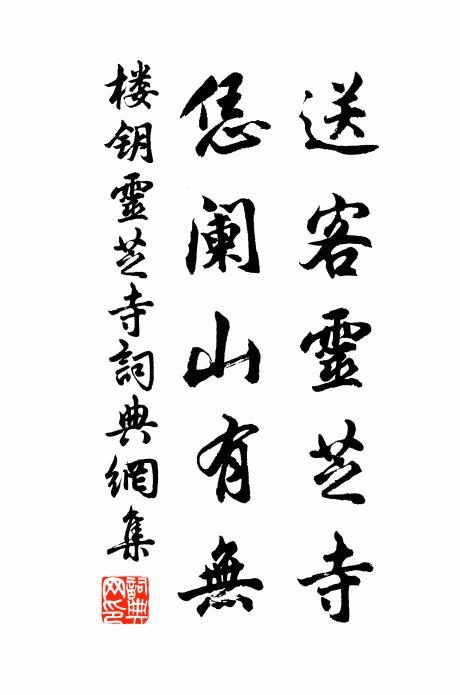 送客靈芝寺
恁阑山有無
楼钥靈芝寺詞典網集
詞典网印